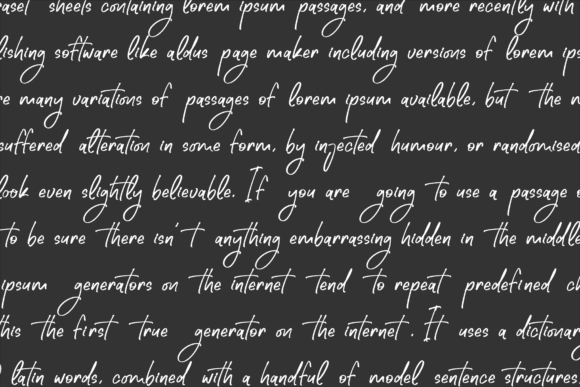 rasel sheels containing lorem ipsum passages, and more recently with
lishing software like aldus page maker including versions of lorem ips
re many variations of passages of lorem ipsum available, but the n
suffered alteration in some form, by injected humour, or randomised
look even slightly believable. If you are going to use a passage o
to be sure there isn't anything embarrassing hidden in the middle
ipsum generators on the internet tend to repeat predefined ch
this the first true generator on the internet. It uses a dictionar
latin words, combined with a handful of model sentence structures